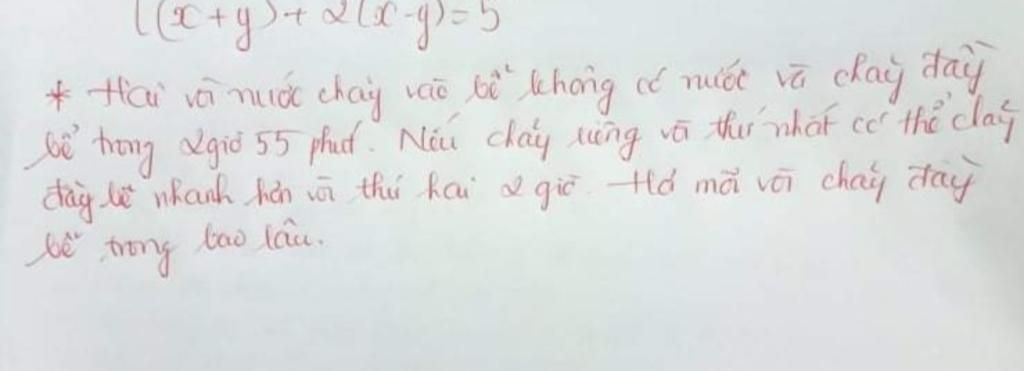 ((x+y)+2(x-y)=5
* Hai vòi nước chảy vào bể không có nước và chảy đầy
bể trong 2 giờ 55 phút. Nếu chảy riêng vòi thứ nhất có thể chảy
đầy bể nhanh hơn vòi thứ hai 2 giờ. Hỏi mỗi vòi chảy đầy
bể trong bao lâu.